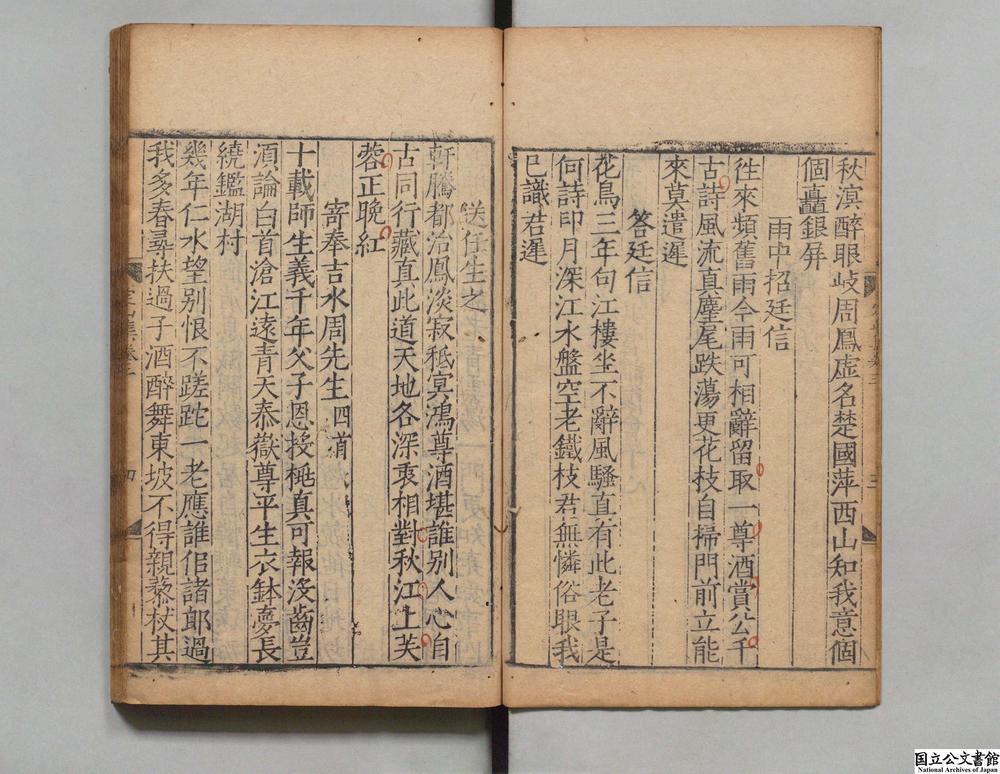 秋溟醉眼岐周鳳虛名楚國萍西山知我意個
個矗銀屏
雨中招廷信
徃來頻舊雨今雨可相辭留取一尊酒賞公千
古詩風流真麈尾跌蕩更花枝自掃門前立能
來莫遣遲
答廷信
花鳥三年句江樓坐不辭風騷直有此老子是
何詩印月深江水盤空老鐵枝君無憐俗眼我
已識君遲
送任生之
軒騰都治鳳淡寂秪冥鴻尊酒堪誰別人心自
古同行藏真此道天地各深衷相對秋江上芙
蓉正晚紅
寄奉吉水周先生四首
十載師生義千年父子恩投㮋真可報沒齒豈
湏論白首滄江遠青天泰嶽尊平生衣鉢夢長
繞鑑湖村
幾年仁水望别恨不蹉跎一老應誰佀諸郎過
我多春尋扶過子酒醉舞東坡不得親藜杖其
四
国立公文書館
National Archives of Japan